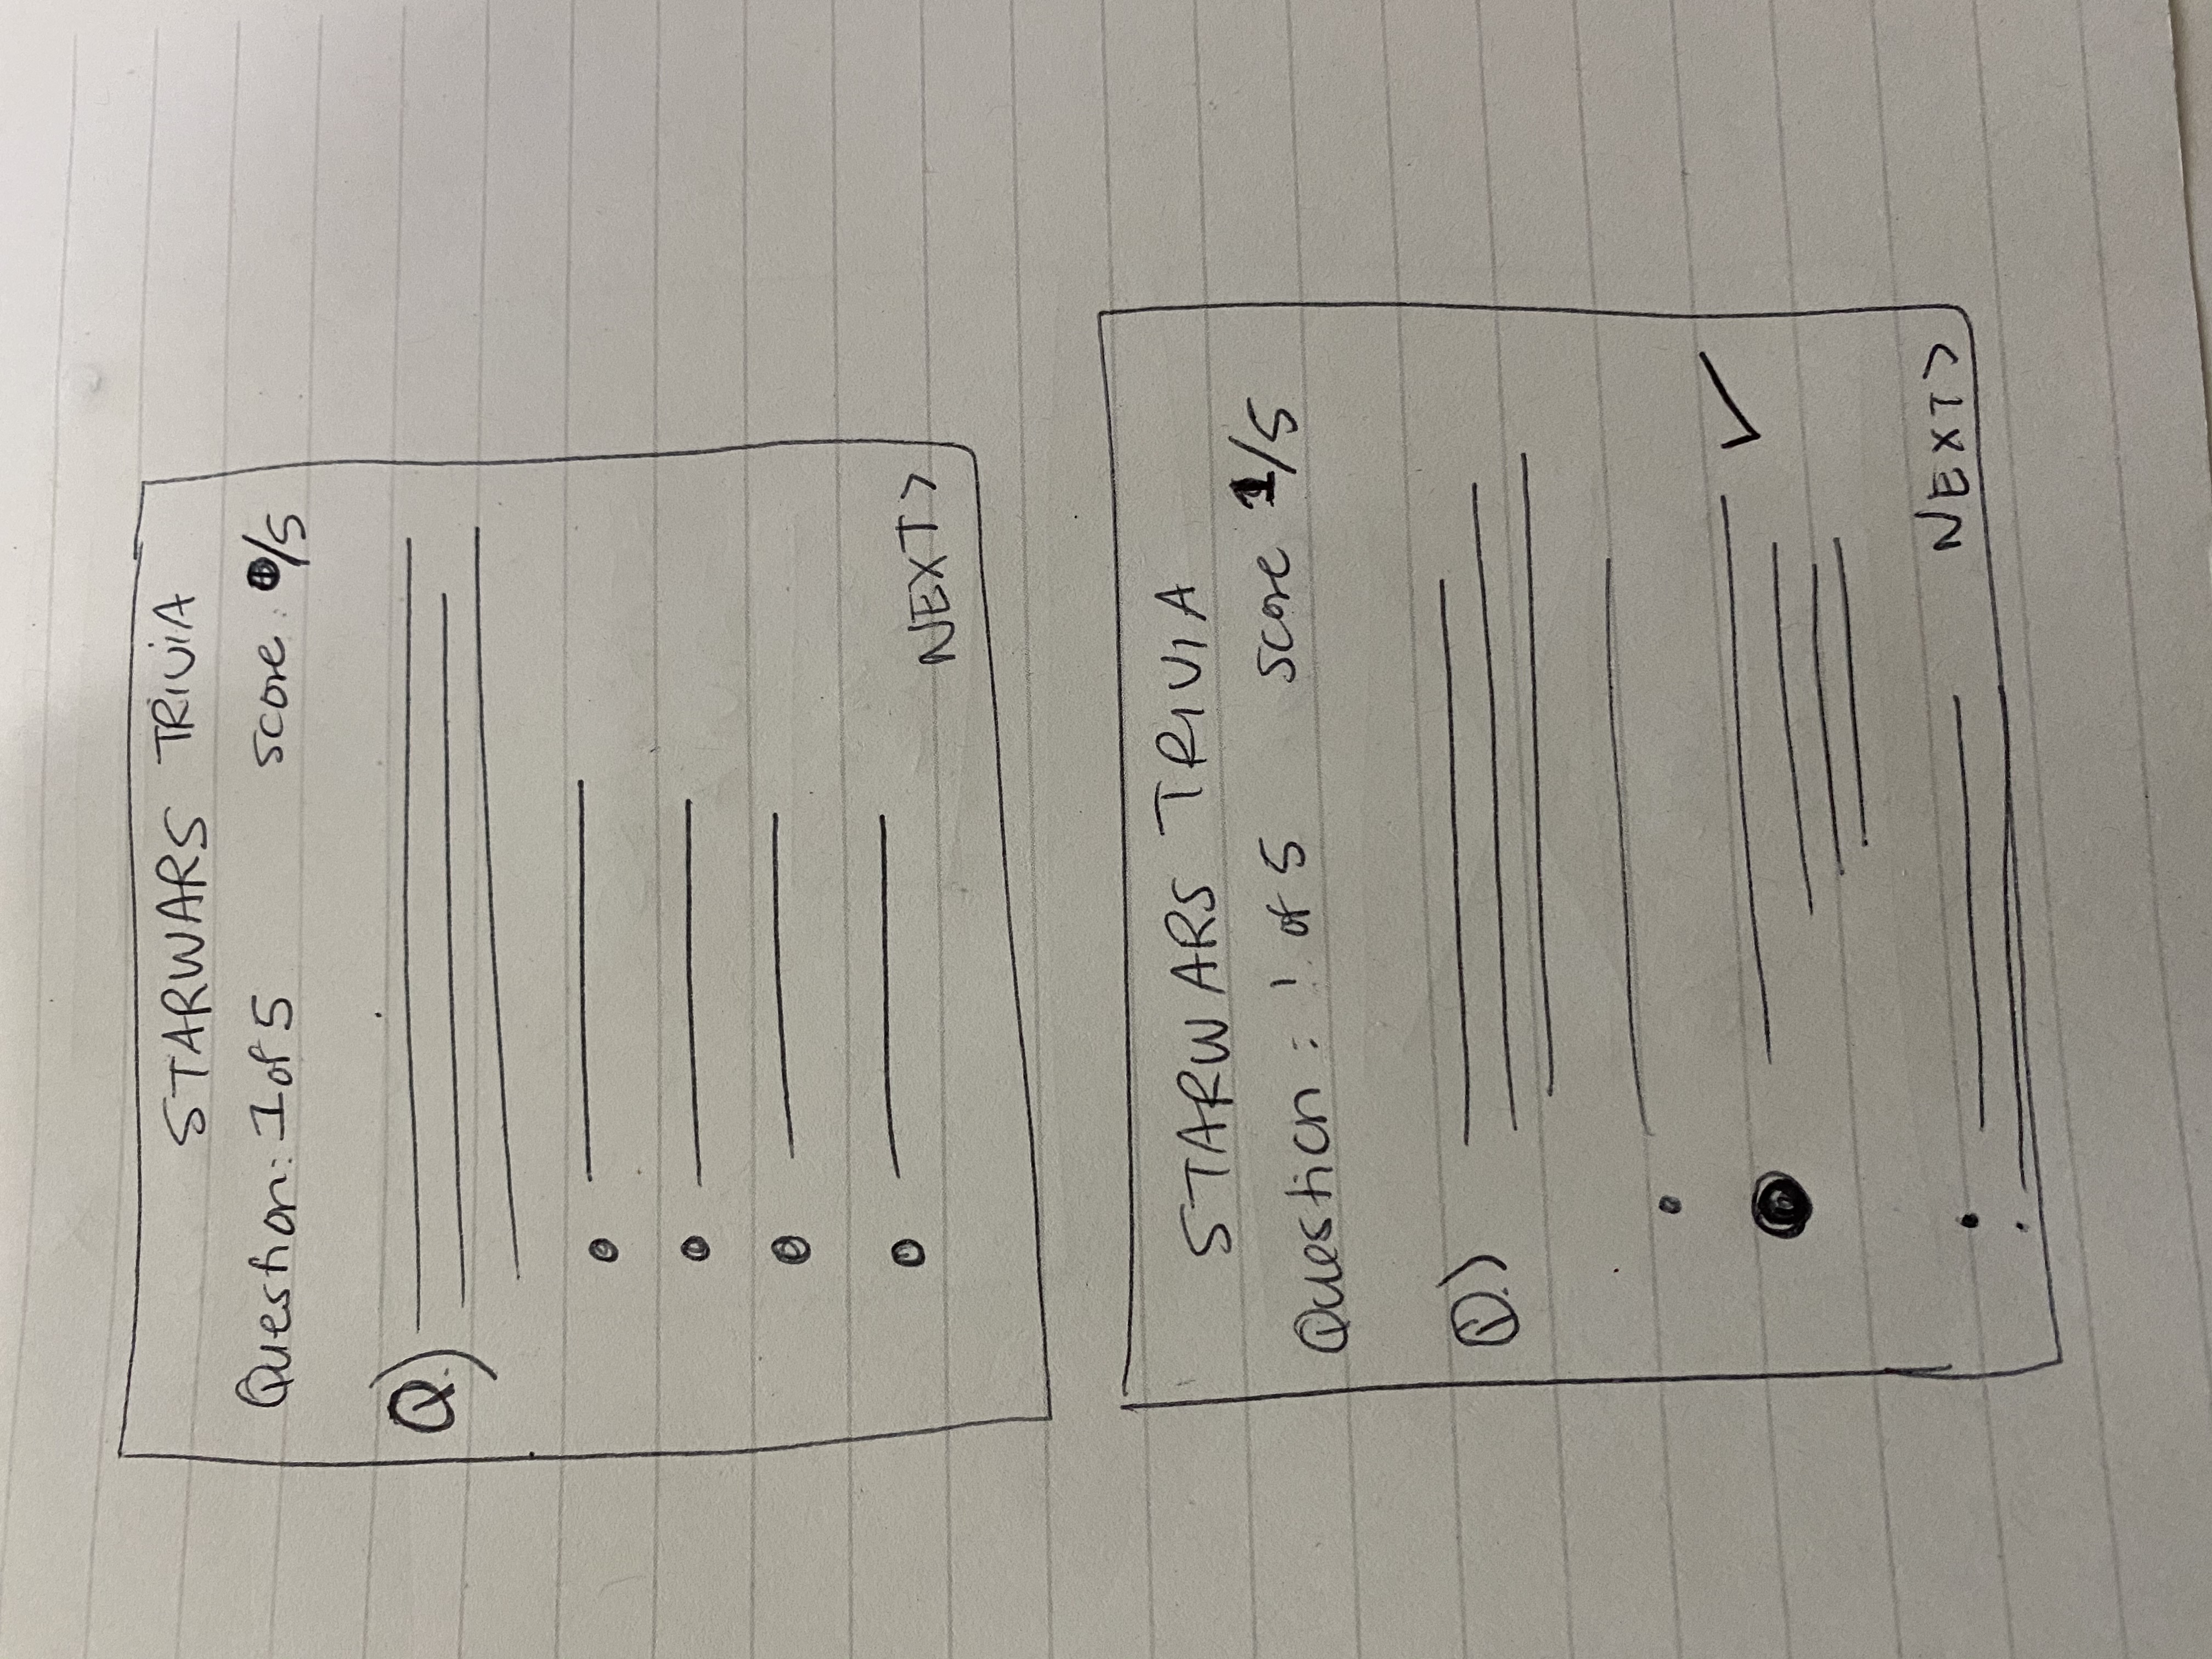 STARWARS TRIVIA
Question: 1 of 5 score: 0/5
Q)
NEXT >
STARWARS TRIVIA
Question: 1 of 5 score 1/5
Q)
NEXT >